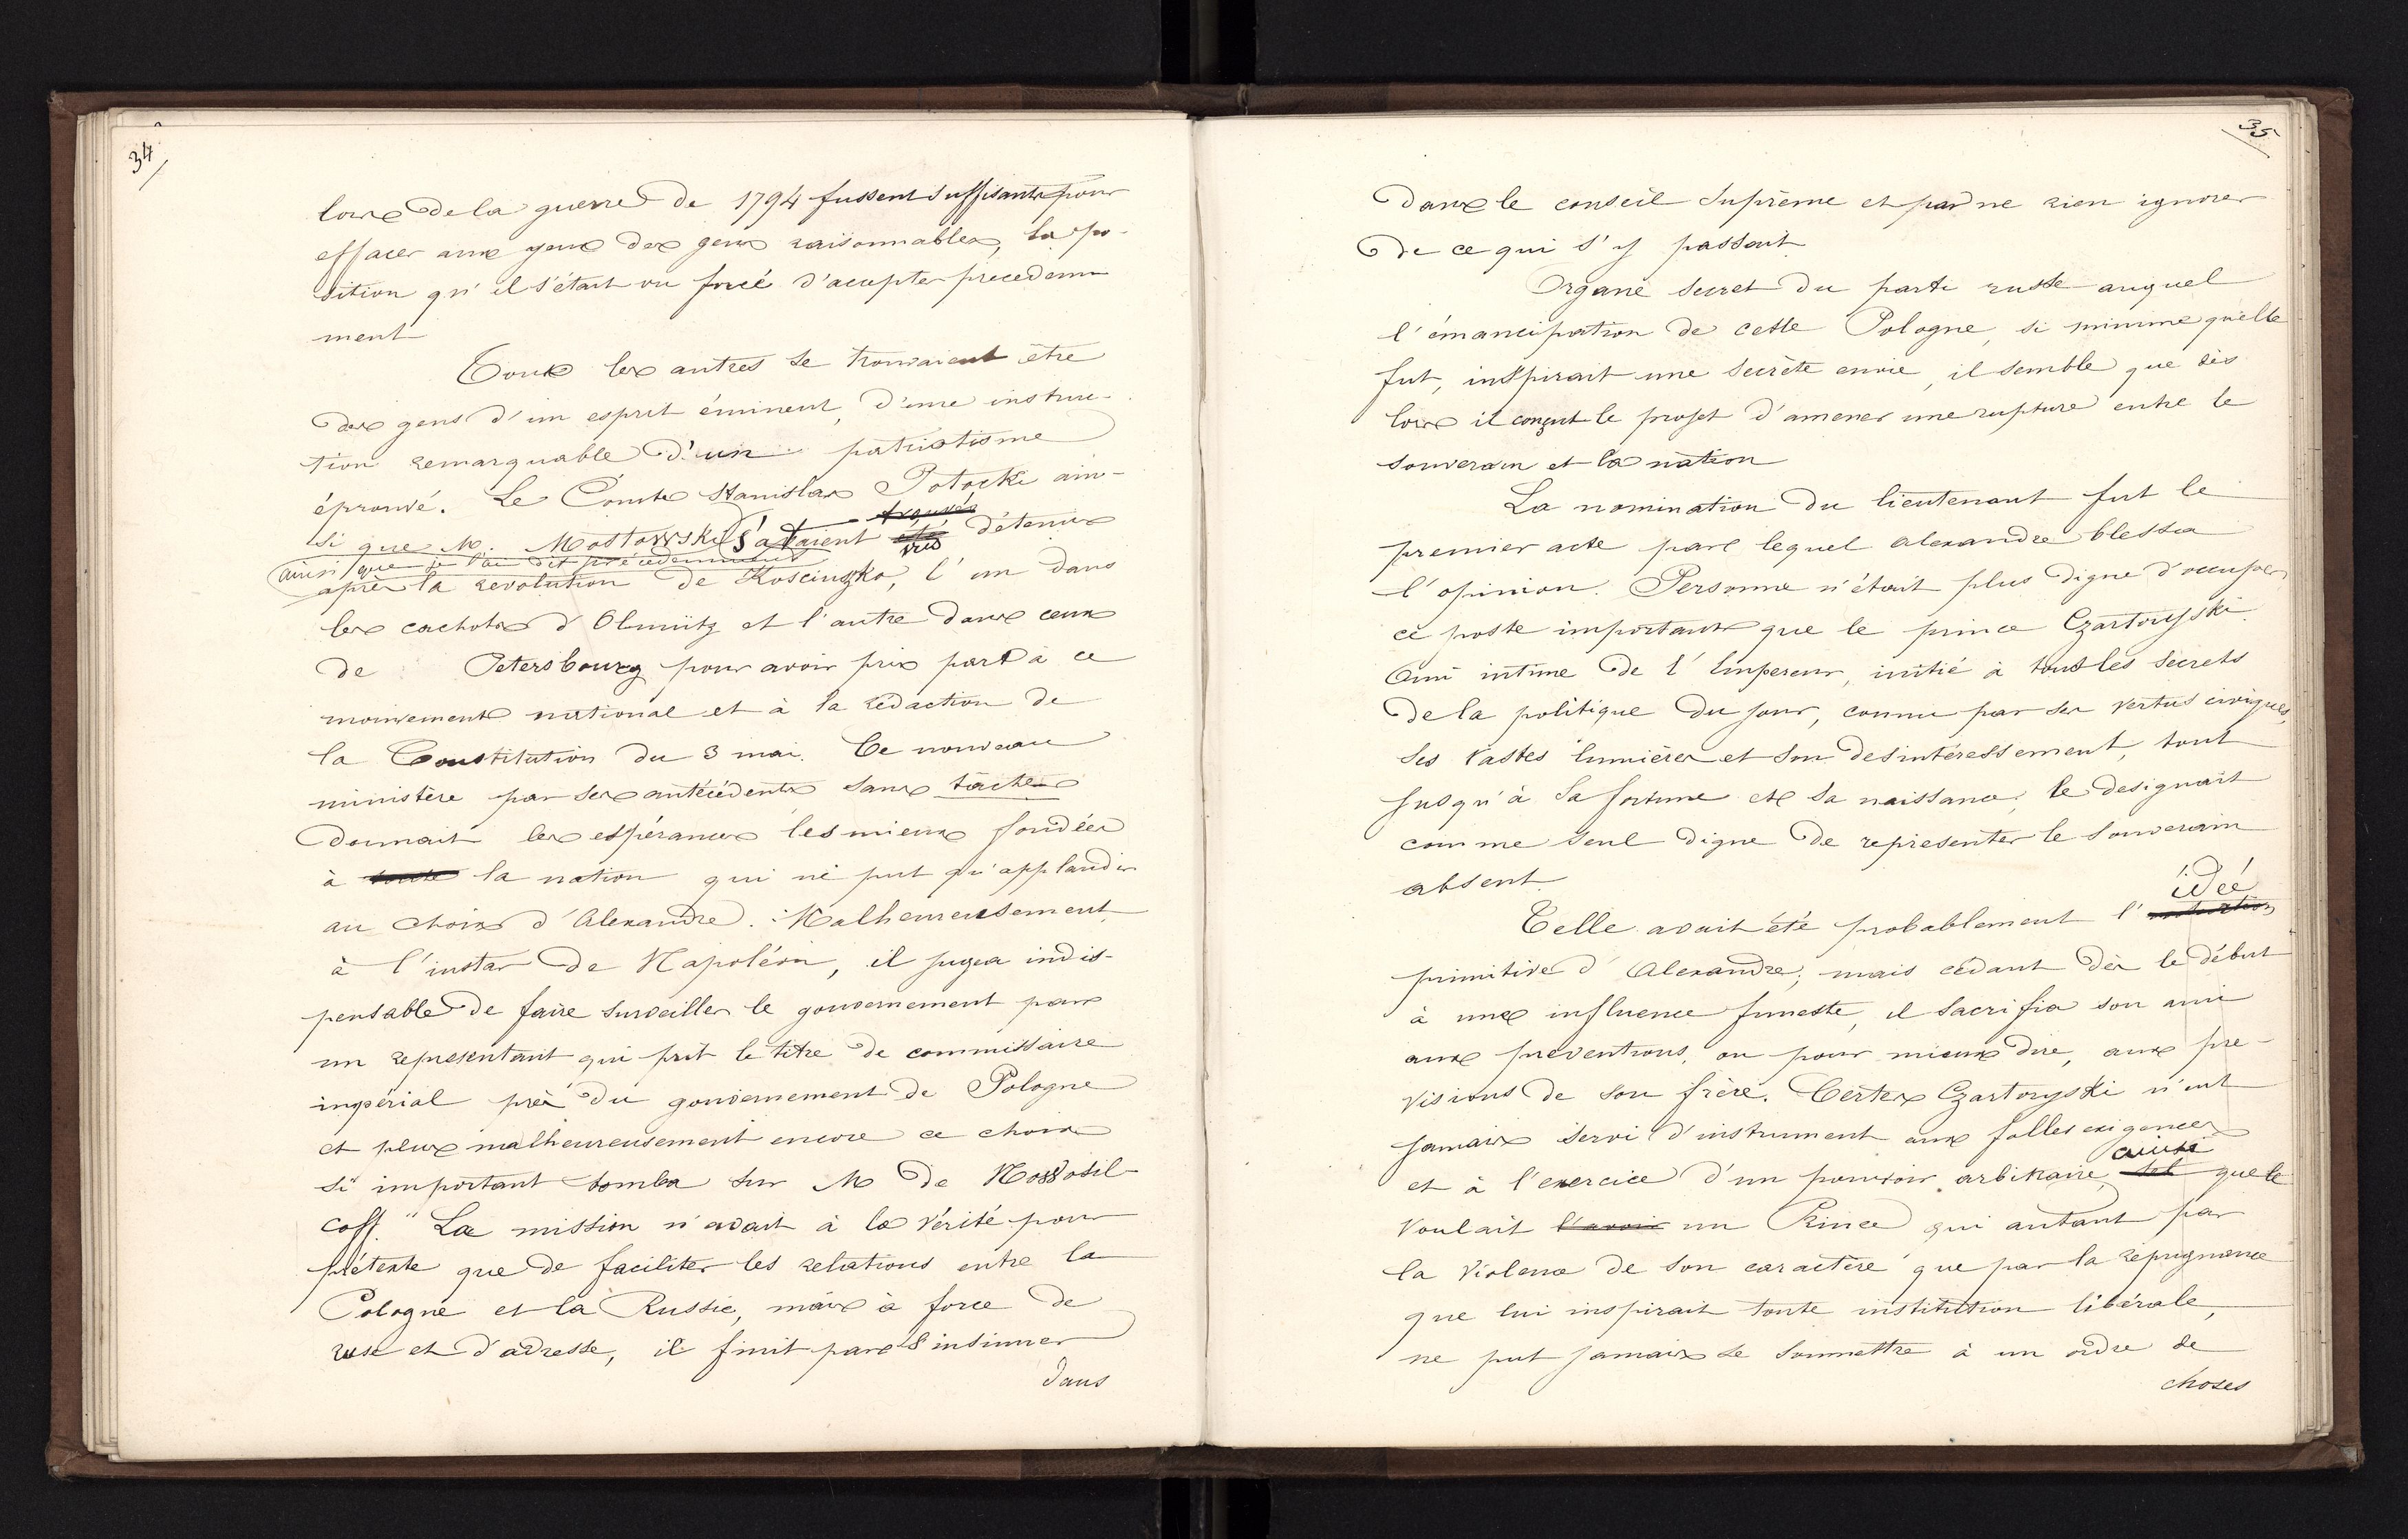 34
lors de la guerre de 1794 fussent suffisants pour
effacer aux yeux des gens raisonnables, la po-
sition qu'il s'était vu forcé d'accepter precedem
ment
Tous les autres se trouvaient être
des gens d'un esprit éminent, d'une instruc-
tion remarquable d'un patriotisme
éprouvé. Le Comte Stanislas Potocki ain-
trouvés
si que M. Mostowski s'étaient été détenus
vus
ainsi que je l'ai dit précédemment
après la revolution de Kosciuszko, l'un dans
les cachots d'Olmütz et l'autre dans ceux
de Petersbourg pour avoir pris part à ce
mouvement national et à la rédaction de
la Constitution du 3 mai. Ce nouveau
ministère par ses antécédents sans taches
donnait les espérances les mieux fondées
à toute la nation qui ne put qu'applaudir
au choix d'Alexandre. Malheureusement
à l'instar de Napoléon, il jugea indis-
pensable de faire surveiller le gouvernement par
un representant qui prit le titre de commissaire
impérial près du gouvernement de Pologne
et plus malheureusement encore ce choix
si important tomba sur M de Nowosil-
coff. La mission n'avait à la vérité pour
prétexte que de faciliter les relations entre la
Pologne et la Russie, mais à force de
ruse et d'adresse, il finit par s'insinuer
dans
35
dans le conseil Suprême et par ne rien ignorer
de ce qui s'y passait.
Organe secret du parti russe auquel
l'émancipation de cette Pologne, si minime qu'elle
fut, inspirait une secrète envie, il semble que dès
lors il conçut le projet d'amener une rupture entre le
souverain et la nation
La nomination du lieutenant fut le
premier acte par lequel Alexandre blessa
l'opinion. Personne n'était plus digne d'occuper
ce poste important que le prince Czartoryski.
Ami intime de l'Empereur, initié à tout les secrets
de la politique du jour, connu par ses vertus civiques,
ses vastes lumières et son desintéressement, tout
jusqu'à sa fortune et sa naissance, le designait
comme seul digne de representer le souverain
absent.
idée
Telle avait été probablement l'
primitive d'Alexandre; mais cédant dès le début
à une influence funeste, il sacrifia son ami
aux preventions, ou pour mieux dire, aux pre-
visions de son frère. Certes Czartoryski n'eut
jamais servi d'instrument aux folles exigences
ainsi
et à l'exercice d'un pouvoir arbitraire, tel que le
voulait l'avoir un Prince qui autant par
la violence de son caractère que par la repugnance
que lui inspirait toute institution libérale,
ne put jamais se soumettre à un ordre de
choses